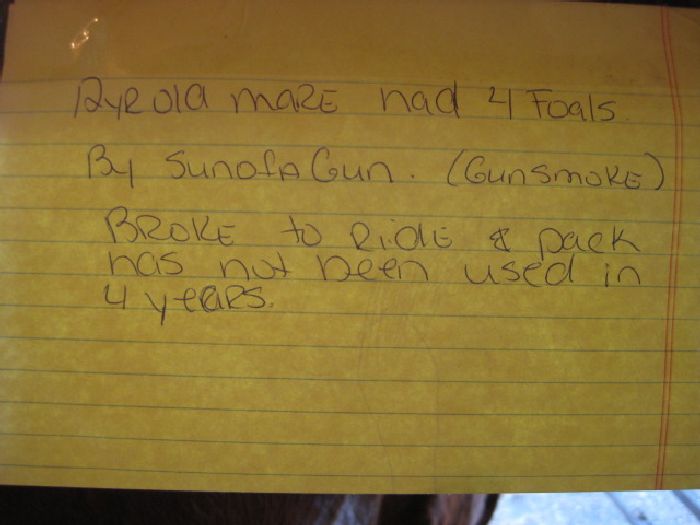 12yr old mare had 4 Foals.
By SunofA Gun. (Gunsmoke)
BROKE to Ride & pack
has not been used in
4 years.